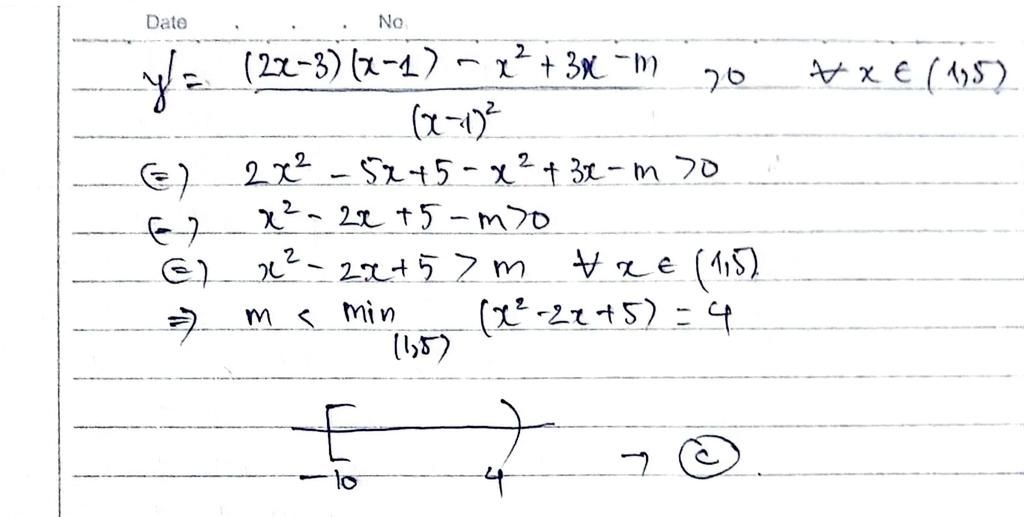 Date . . . No.
y' = \frac{(2x-3)(x-1) - x² + 3x - m}{(x-1)²} >0 ∀ x ∈ (1;5)
(=) 2x² - 5x + 5 - x² + 3x - m >0
(=) x² - 2x + 5 - m >0
(=) x² - 2x + 5 > m ∀ x ∈ (1;5)
=> m < min_{(1;5)} (x² - 2x + 5) = 4
[ )
-10 4 → C.